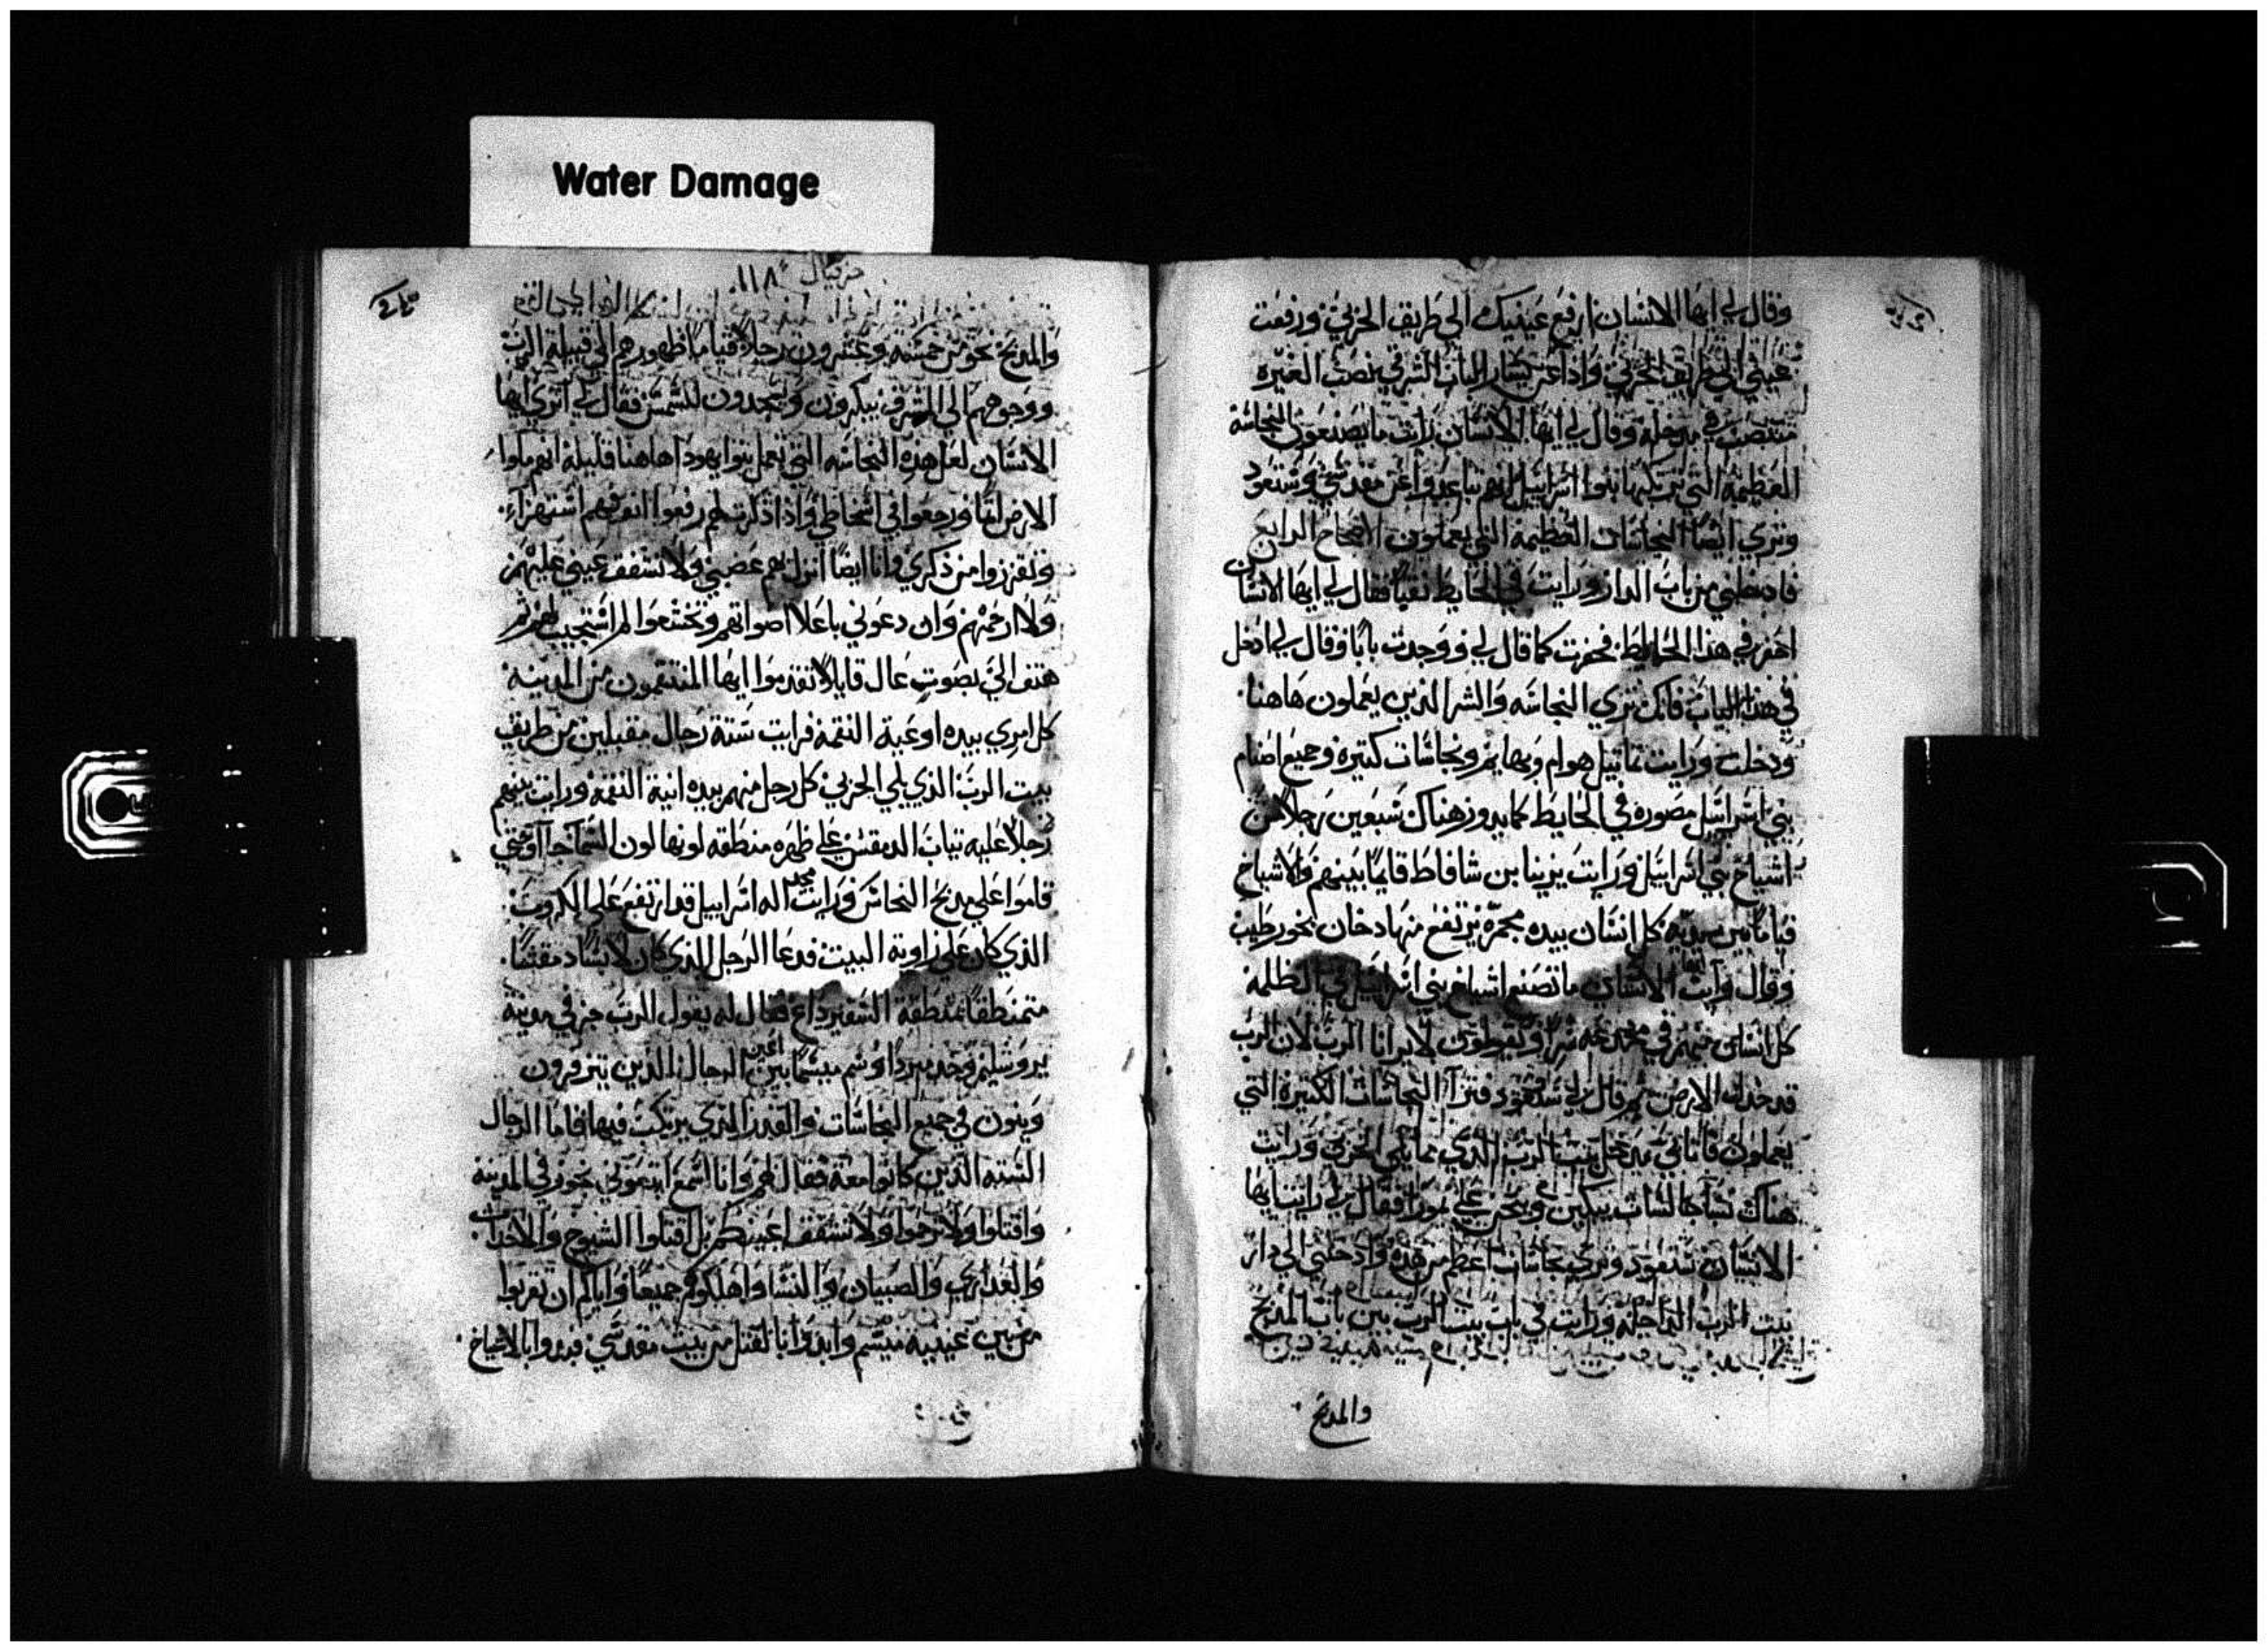 Water Damage
وقال لي ايها الانسان ارفع عينيك الي طريق الجربي ورفعت
عيني الي طريق الجربي واذا عن يسار الباب الشرقي نصب الغيره
منتصب في مدخله وقال لي ايها الانسان رايت ما يصنعون النجاسه
العظيمة التي يرتكبها بنوا اسراييل انهم تباعدوا عن مقدسي وستعود
وتري ايضا النجاسات العظيمة التي يعملون الاصحاح الرابع
فادخلني من باب الدار ورايت في الحايط نقبا فقال لي ايها الانسان
احفر في هذا الحايط فحفرت كما قال لي ووجدت بابا وقال لي ادخل
في هذا الباب فانك تري النجاسه والشر الذين يعملون هاهنا
ودخلت ورايت تماثيل هوام وبهايم ونجاسات كتيره وجميع اصنام
بني اسراييل مصوره في الحايط كما يدور هناك سبعين رجلا من
اشياخ بني اسراييل ورايت يزينا بن شافاط قايما بينهم والاشياخ
قياما بين يديه كل انسان بيده مجمرة يرتفع منها دخان بخور طيب
وقال رايت ايها الانسان ما تصنع اشياخ بني اسراييل في الظلمه
كل انسان منهم في مخدعه سرا ويقولون لا يرانا الرب لان الرب
قد خذل الارض ثم قال لي ستعود فترا النجاسات الكتيرة التي
يعملون فاتاني مدخل بيت الرب الذي مما يلي الجربي ورايت
هناك نسا جالسات يبكين وينحن علي تموزا فقال لي رايت ايها
الانسان ستعود وتري نجاسات اعظم من هذه وادخلني الي دار
بيت الرب الداخله ورايت في باب بيت الرب بين باب المذبح
والمذبح
حزقيال ١١٨
والمذبح نحو من خمسه وعشرون رجلا قياما ظهورهم الي قبيلة الرب
ووجوههم الي المشرق يبكرون ويسجدون للشمس فقال لي اتري ايها
الانسان لعل هذه النجاسه التي تعمل بنوا يهودا هاهنا قليلة انهم ملوا
الارض اثما ورجعوا في اسخاطي واذا ذكرتهم رفعوا انوفهم استهزاء
وتقززوا من ذكري فانا ايضا انزل بهم غضبي ولا تشفق عيني عليهم
ولا ارحمهم وان دعوني باعلا اصواتهم وتخشعوا لم استجيب لهم ثم
هتف الي بصوت عال قايلا تقدموا ايها المنتقمون من المدينه
كل امري بيده اوعية النقمة فرايت ستة رجال مقبلين من طريق
بيت الرب الذي يلي الجربي كل رجل منهم بيده انية النقمة ورايت بينهم
رجلا عليه تياب الدمقس علي ظهره منطقه لونها لون السما جاآ وحتي
قاموا علي مذبح النحاس ورايت مجد اله اسراييل قد ارتفع علي الكروب
الذي كان علي زاوية البيت فدعا الرجل الذي كان لابسا دمقسا
متمنطقا منطقة السفير داع فقال له يقول الرب جز في مدينة
يروشليم وخذ مبردا وشم ميسما بين اعين الرجال الذين يتزفرون
وينون في جميع النجاسات والقذر الذي يرتكب فيها فاما الرجال
السته الذين كانوا معه فقال لهم وانا اسمع اتبعوني جوز في المدينة
واقتلوا ولا ترحموا ولا تشفق اعينكم بل اقتلوا الشيوخ والاحداث
والعذاري والصبيان والنسا واهلكوهم جميعا واياكم ان تقربوا
من بين عينيه ميسم وابدوا بالقتل من بيت مقدسي فبدوا بالاشياخ